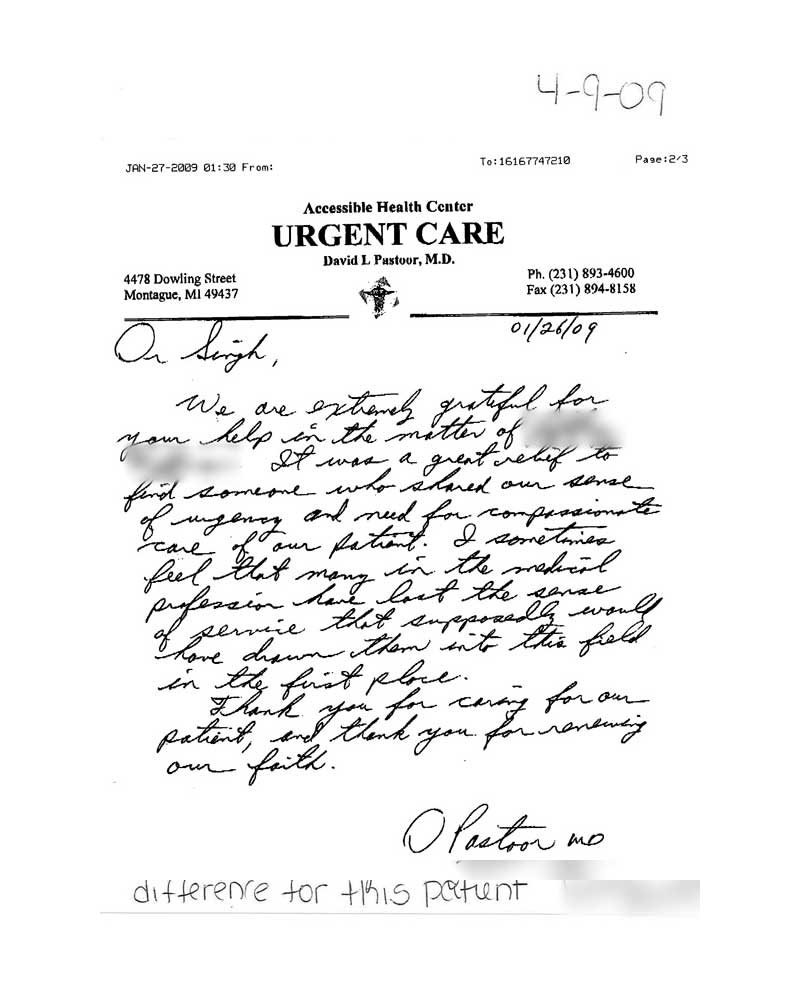 4-9-09
JAN-27-2009 01:30 From: To:16167747210 Page:2/3
Accessible Health Center
URGENT CARE
David L Pastoor, M.D.
4478 Dowling Street Ph. (231) 893-4600
Montague, MI 49437 Fax (231) 894-8158
01/26/09
Dr Singh,
We are extremely grateful for
your help in the matter of
It was a great relief to
find someone who shared our sense
of urgency and need for compassionate
care of our patient. I sometimes
feel that many in the medical
profession have lost the sense
of service that supposedly would
have drawn them into this field
in the first place.
Thank you for caring for our
patient, and thank you for renewing
our faith.
D Pastoor MD
difference for this patient